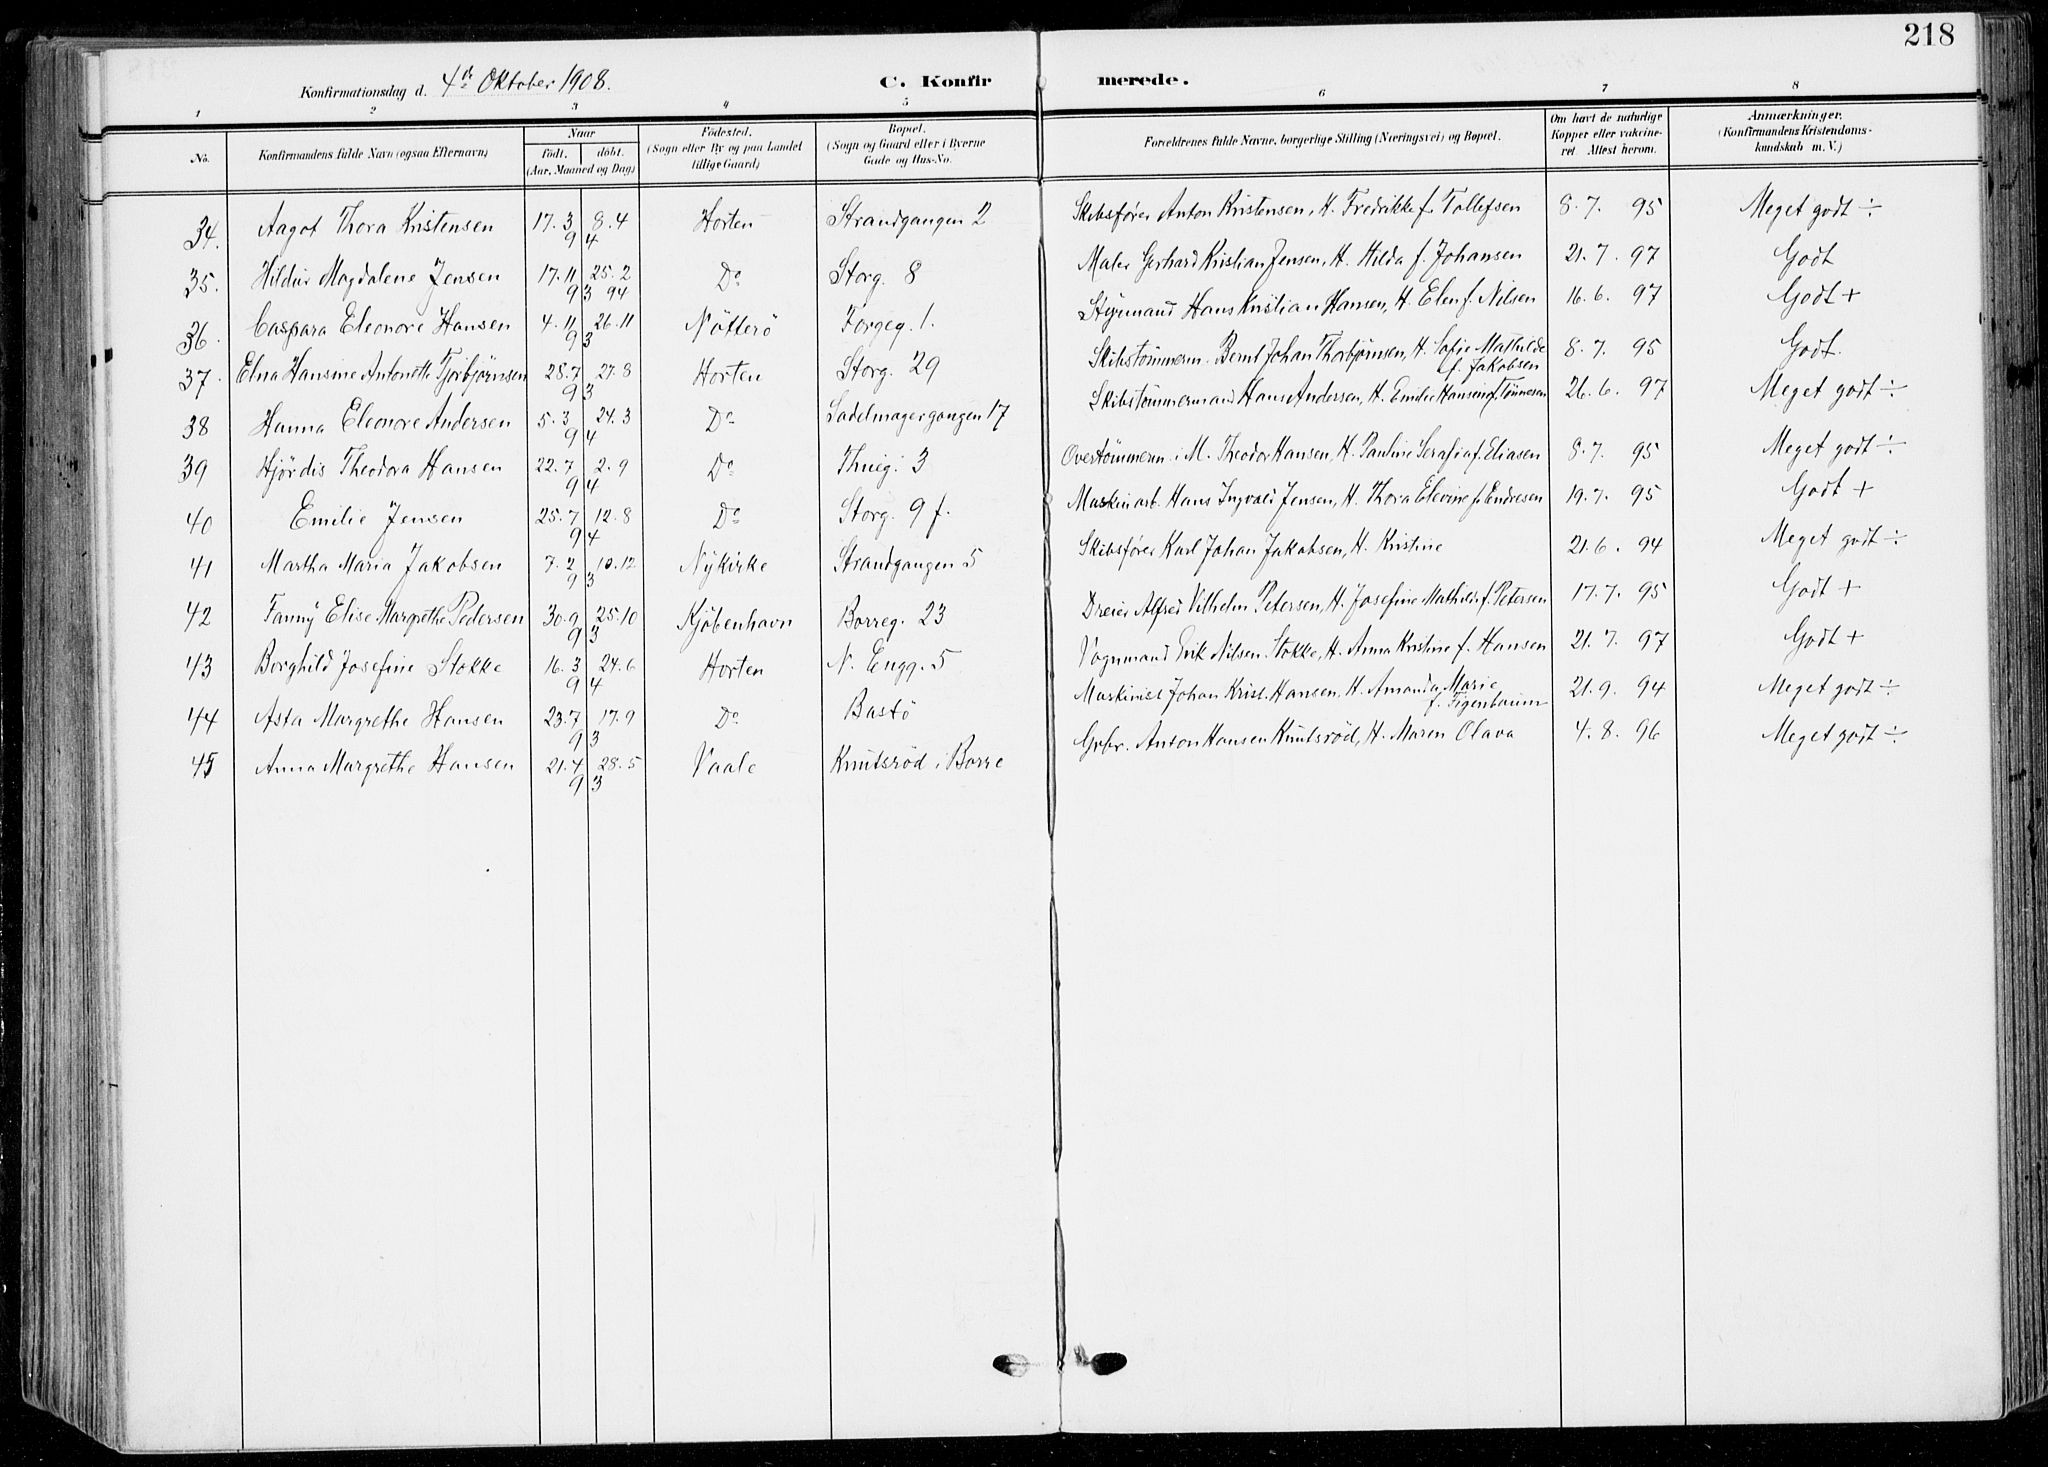 218
Konfirmationsdag d. 4de Oktober 1908.
C. Konfir
merede.
1 2 3 4 5 6 7 8
No.
Konfirmandens fulde Navn (ogsaa Efternavn)
Naar
født. døbt.
(Aar, Maaned og Dag)
Fødested.
(Sogn eller By og paa Landet
tillige Gaard)
Bopæl.
(Sogn og Gaard eller i Byerne
Gade og Hus-No.
Forældrenes fulde Navne, borgerlige Stilling (Næringsvei) og Bopæl.
Om havt de naturlige
Kopper eller vakcine-
ret. Attest herom.
Anmærkninger.
(Konfirmandens Kristendoms-
kundskab m. V.)
34. Aagot Thora Kristensen 17.3 8.4 94 Horten Strandgangen 2 Skibsfører Anton Kristensen, H. Fredrikke f. Tollefsen 8.7. 95 Meget godt ÷
35. Hildur Magdalene Jensen 17.11 93 25.2 94 Do Storg. 8 Maler Gerhard Kristian Jensen, H. Hilda f. Johansen 21.7. 97 Godt
36. Caspara Eleonore Hansen 4.11 26.11 93 Nøtterö Torgeg. 1. Styrmand Hans Kristian Hansen, H. Elen f. Nilsen 16.6. 97 Godt +
37. Elna Hansine Antonette Tjorbjørnsen 28.7 27.8 93 Horten Storg. 29 Skibstömmerm. Bernt Johan Thorbjørnsen, H. Sofie Mathilde f. Jakobsen 8.7. 95 Godt.
38 Hanna Eleonore Andersen 5.3 24.3 94 Do Sadelmagergangen 17 Skibstømmermand Hans Andersen, H. Emilie Hansine f. Tønnesen 26.6. 97 Meget godt ÷
39 Hjördis Theodora Hansen 22.7 2.9 94 Do Thueg. 3 Overtömmerm. i M. Theodor Hansen, H. Pauline Serafia f. Eliasen 8.7. 95 Meget godt ÷
40 Emilie Jensen 25.7 12.8 94 Do Storg. 9 f. Maskinarb. Hans Ingvald Jensen, H. Thora Elevine f. Endresen 19.7. 95 Godt +
41 Martha Maria Jakobsen 7.2 10.12 93 Nykirke Strandgangen 5 Skibsfører Karl Johan Jakobsen, H. Kristine 21.6. 94 Meget godt ÷
42 Fanny Elise Margrethe Pedersen 30.9 25.10 93 Kjøbenhavn Borreg. 23 Dreier Alfred Vilhelm Petersen, H. Josefine Mathilde f. Petersen 17.7. 95 Godt +
43 Borghild Josefine Stokke 16.3 24.6 94 Horten N. Engg. 5 Vognmand Erik Nilsen Stokke, H. Anna Kristine f. Hansen 21.7. 97 Godt +
44 Asta Margrethe Hansen 23.7 17.9 93 Do Bastö Maskinist Johan Krist. Hansen, H. Amanda Marie f. Figenbaum 21.9. 94 Meget godt ÷
45 Anna Margrethe Hansen 21.4 28.5 93 Vaale Knutsrød i Borre Grbr. Anton Hansen Knutsrød, H. Maren Olava 4.8. 96 Meget godt ÷